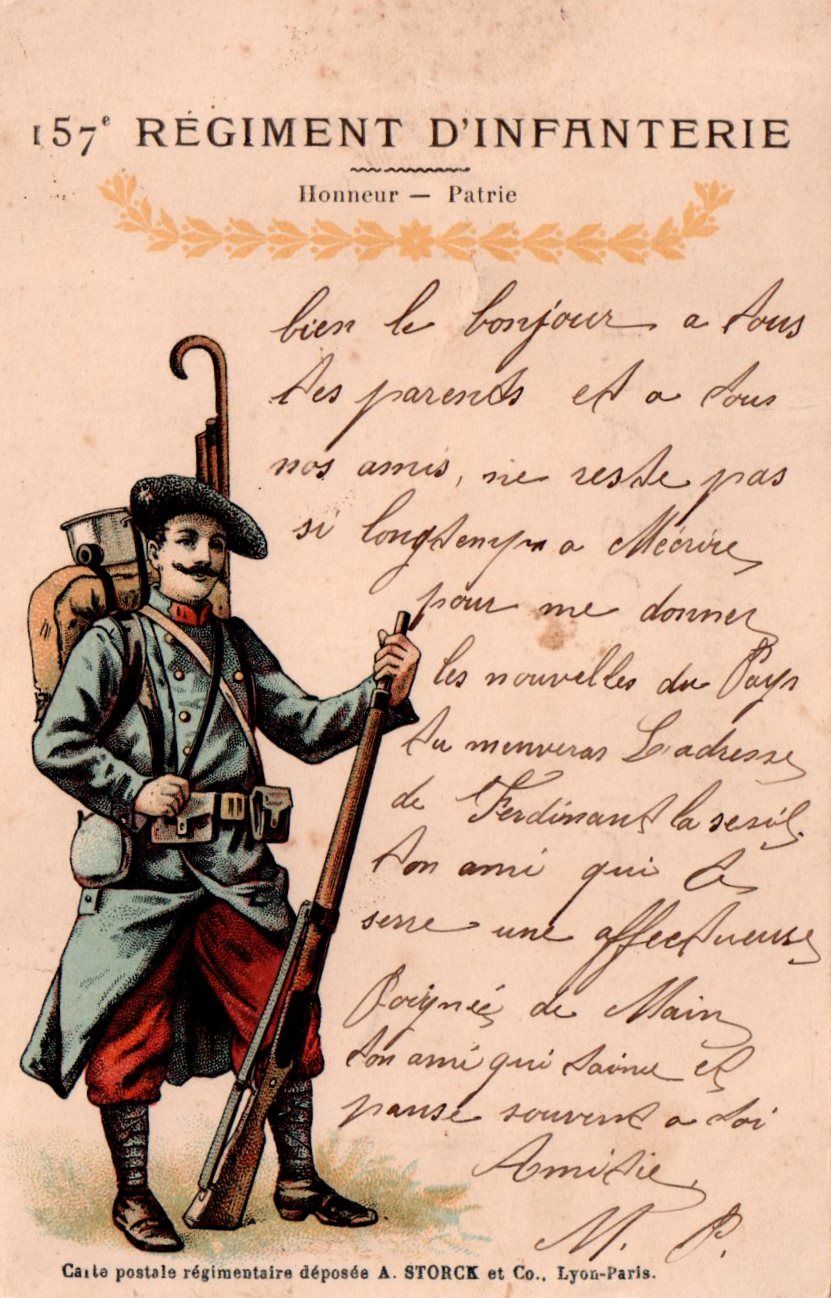 157e RÉGIMENT D'INFANTERIE
Honneur — Patrie
bien le bonjour a tous
tes parents et a tous
nos amis, ne reste pas
si longtemps a Mécrire
pour me donner
les nouvelles du Pays
tu menveras L'adresse
de Ferdinant la
ton ami qui te
serre une affectueuse
Poignée de Main
ton ami qui taime et
panse souvent a toi
Amitie
M. P.
Carte postale régimentaire déposée A. STORCK et Co., Lyon-Paris.